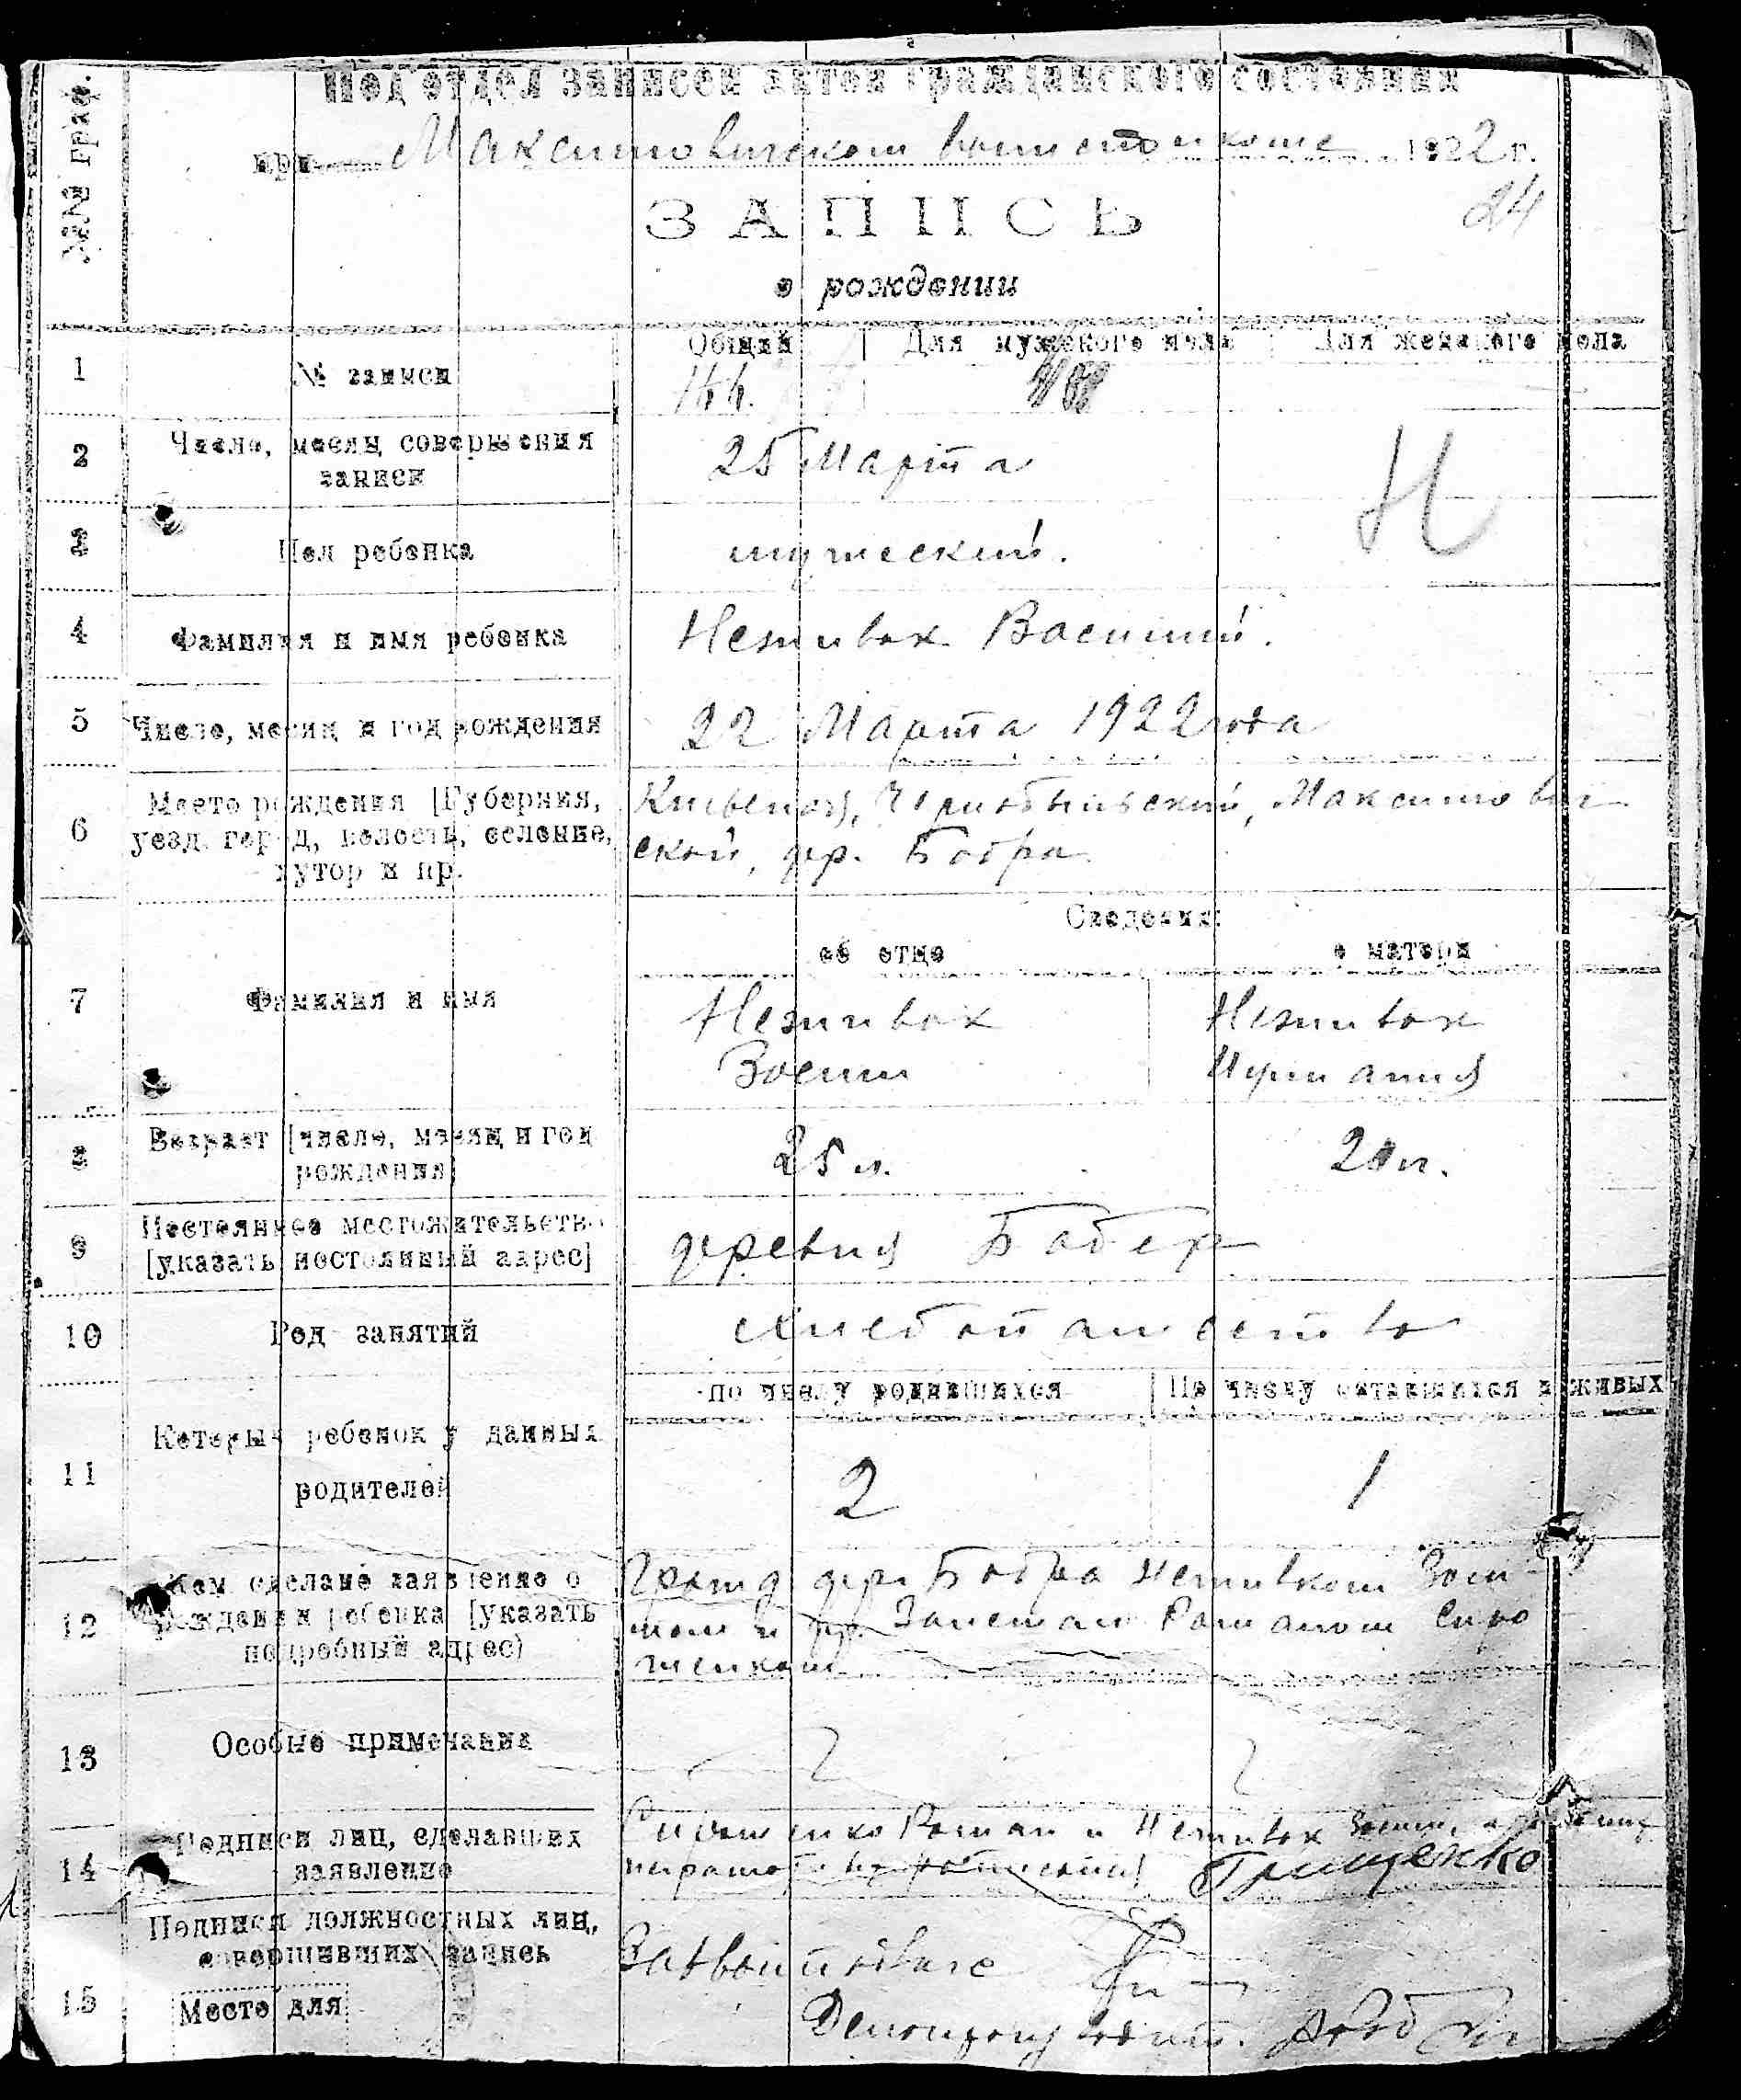 №№ граф.
Под'отдел записей актов гражданского состояния
при Максимовичском 1922 г.
24
ЗАПИСЬ
о рождении
Общий | Для мужского пола | Для женского пола
1 № записи 144.
2 Число, месяц совершения
записи 25 Марта
Н
3 Пол ребенка мужеский.
4 Фамилия и имя ребенка Неживок Василий.
5 Число, месяц и год рождения 22 Марта 1922 года
6 Место рождения [Губерния,
уезд, город, волость, селение,
хутор и пр.
Киевской, Чернобыльский, Максимович
ской, дер. Бобра
Сведения:
об отце о матери
7 Фамилия и имя
Неживок Неживок
Зосим
8 Возраст [число, месяц и год
рождения] 25 л. 20 л.
9 Постоянное местожительство
[указать постоянный адрес]
деревня Бобер
10 Род занятий хлебопашество
по числу родившихся | По числу оставшихся в живых
11 Который ребенок у данных
родителей 2 1
12 Кем сделано заявление о
рождении ребенка [указать
подробный адрес)
Гражд. дер. Бобра Неживком Зоси
мом и Романом Сиро
женком
13 Особые примечания
14 Подписи лиц, сделавших
заявление
Сироженко Роман и Неживок Зосим, а
неграмотн. Грищенко
15 Подписи должностных лиц,
совершивших запись
Место для
Делопроизводит.